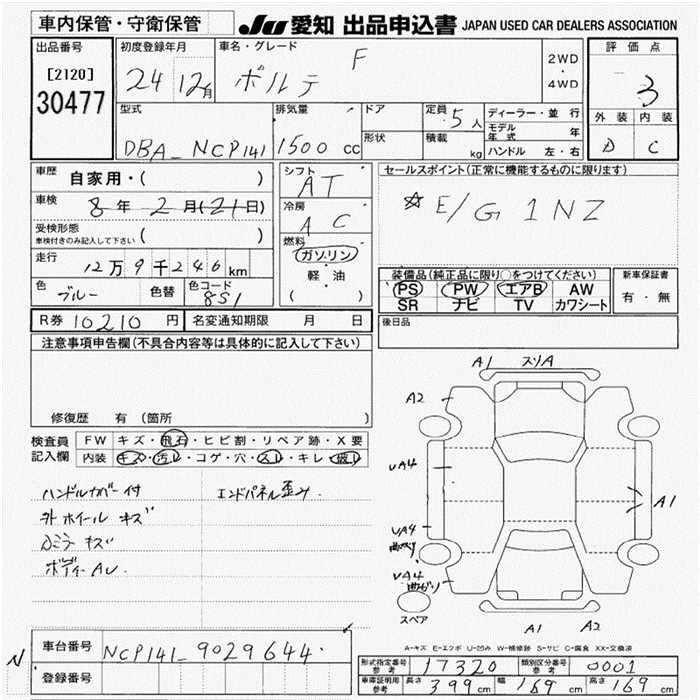 車内保管・守衛保管
JU 愛知 出品申込書 JAPAN USED CAR DEALERS ASSOCIATION
出品番号
[2120]
30477
初度登録年月
24 12月
車名・グレード
ポルテ F
2WD
・
4WD
評価点
3
外装 内装
D C
型式
DBA-NCP141
排気量
1500 cc
ドア
形状
定員 5人
積載 kg
ディーラー・並行
モデル年式 年
ハンドル 左・右
車歴 自家用・( )
車検 8年 2月(21日)
受検形態
車検付きのみ記入して下さい ( )
走行 12万9千246km
色 ブルー 色替 色コード 8S1
シフト
AT
冷房
AC
燃料
ガソリン
軽・油
( )
セールスポイント(正常に機能するものに限ります)
☆E/G 1NZ
装備品(純正品に限り○をつけてください)
PS PW エアB AW
SR ナビ TV カワシート
新車保証書
有・無
R券 10210円 名変通知期限 月 日
後日品
注意事項申告欄(不具合内容等は具体的に記入して下さい)
修復歴 有 (箇所
検査員
記入欄
FW キズ・飛石・ヒビ割・リペア跡・X要
内装 キズ・汚レ・コゲ・穴・スレ・キレ・破レ
ハンドルカバー付 エンドパネル歪み.
外 ホイール キズ
Dミラ キズ
ボディーAU.
A1 スリA
A2
UA4
A1
UA4
曲がり
UA4
曲がり
スペア
A1 A2
A-キズ E-エクボ U-凹み W-補修跡 S-サビ C-腐食 XX-交換済
N
車台番号 NCP141-9029644
登録番号
型式指定番号
参考 17320
類別区分番号
参考 0001
車庫証明用
参考 長さ 399cm 幅 169cm 高さ 169cm